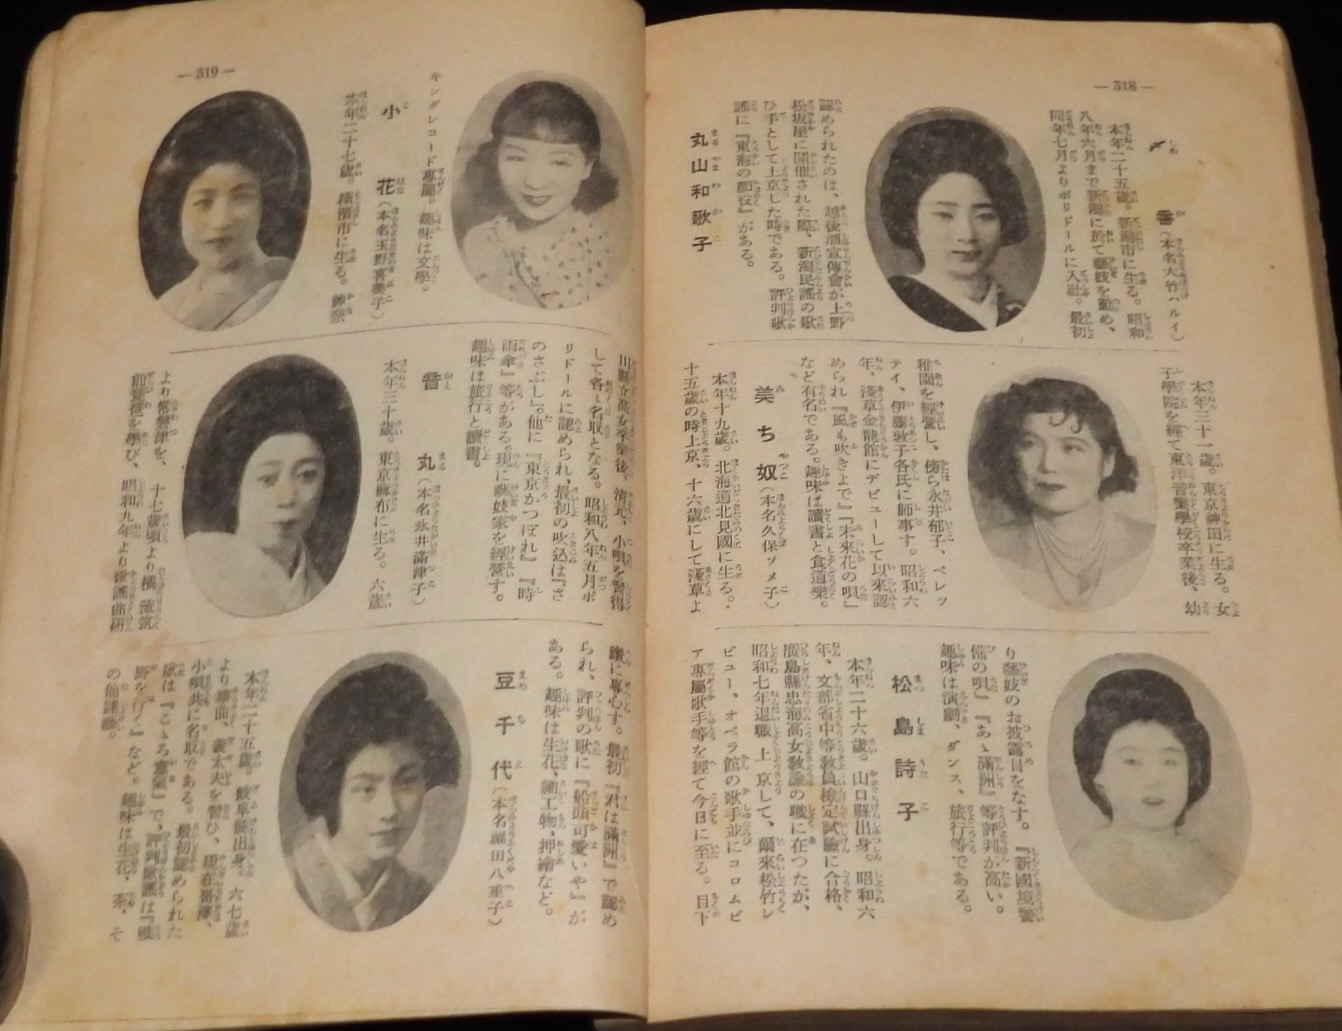 — 318 —
〆香(本名大竹ハルイ)
本年二十五歳。新潟市に生る。昭和
八年六月まで新潟に於て藝妓を勤め、
同年七月よりポリドールに入社。最初
認められたのは、越後酒宣傳會が上野
松坂屋に開催された際、新潟民謠の歌
ひ手として上京した時である。評判歌
謠に『東海の顔役』がある。
丸山和歌子
本年三十一歳。東京神田に生る。女
子學院を經て東洋音樂學校卒業後、幼
稚園を經營し、傍ら永井郁子、ペレッ
テイ、伊藤敦子各氏に師事す。昭和六
年、淺草金龍館にデビューして以來認
められ『風も吹きよで』『未來花の唄』
など有名である。趣味は讀書と食道樂。
美ち奴(本名久保ソメ子)
本年十九歳。北海道北見國に生る。
十五歳の時上京、十六歳にして淺草よ
り藝妓のお披露目をなす。『新國境警
備の唄』『あゝ滿洲』等評判が高い。
趣味は演劇、ダンス、旅行等である。
松島詩子
本年二十六歳。山口縣出身。昭和六
年、文部省中等教員檢定試驗に合格、
廣島縣忠海高女教諭の職に在つたが、
昭和七年退職上京して、爾來松竹レ
ビュー、オペラ館の歌手並にコロムビ
ア專屬歌手等を經て今日に至る。目下
— 319 —
キングレコード專屬。趣味は文學。
小花(本名玉野喜美子)
本年二十七歳。横濱市に生る。神奈
川縣立高女卒業後、清元、小唄を習得
して各々名取となる。昭和八年五月ポ
リドールに認められ、最初の吹込は『さ
のさぶし』。他に『東京かつぽれ』『時
雨傘』等がある。現に藝妓家を經營す。
趣味は旅行と讀書。
音丸(本名永井滿津子)
本年三十歳。東京麻布に生る。六歳
より常磐津を、十七歳頃より橘流筑
前琵琶を學び、昭和九年より歌謠曲研
鑽に專心す。最初『君は滿洲』で認め
られ、評判の歌に『船頭可愛いや』が
ある。趣味は生花、細工物、押繪など。
豆千代(本名福田八重子)
本年二十五歳。岐阜縣出身。六七歳
より箏曲、義太夫を習ひ、現在常磐津、
小唄共に名取である。最初認められた
歌は『こゝろ意氣』で、評判歌謠は『曠
野を行く』など。趣味は生花、茶、そ
の他諸藝。